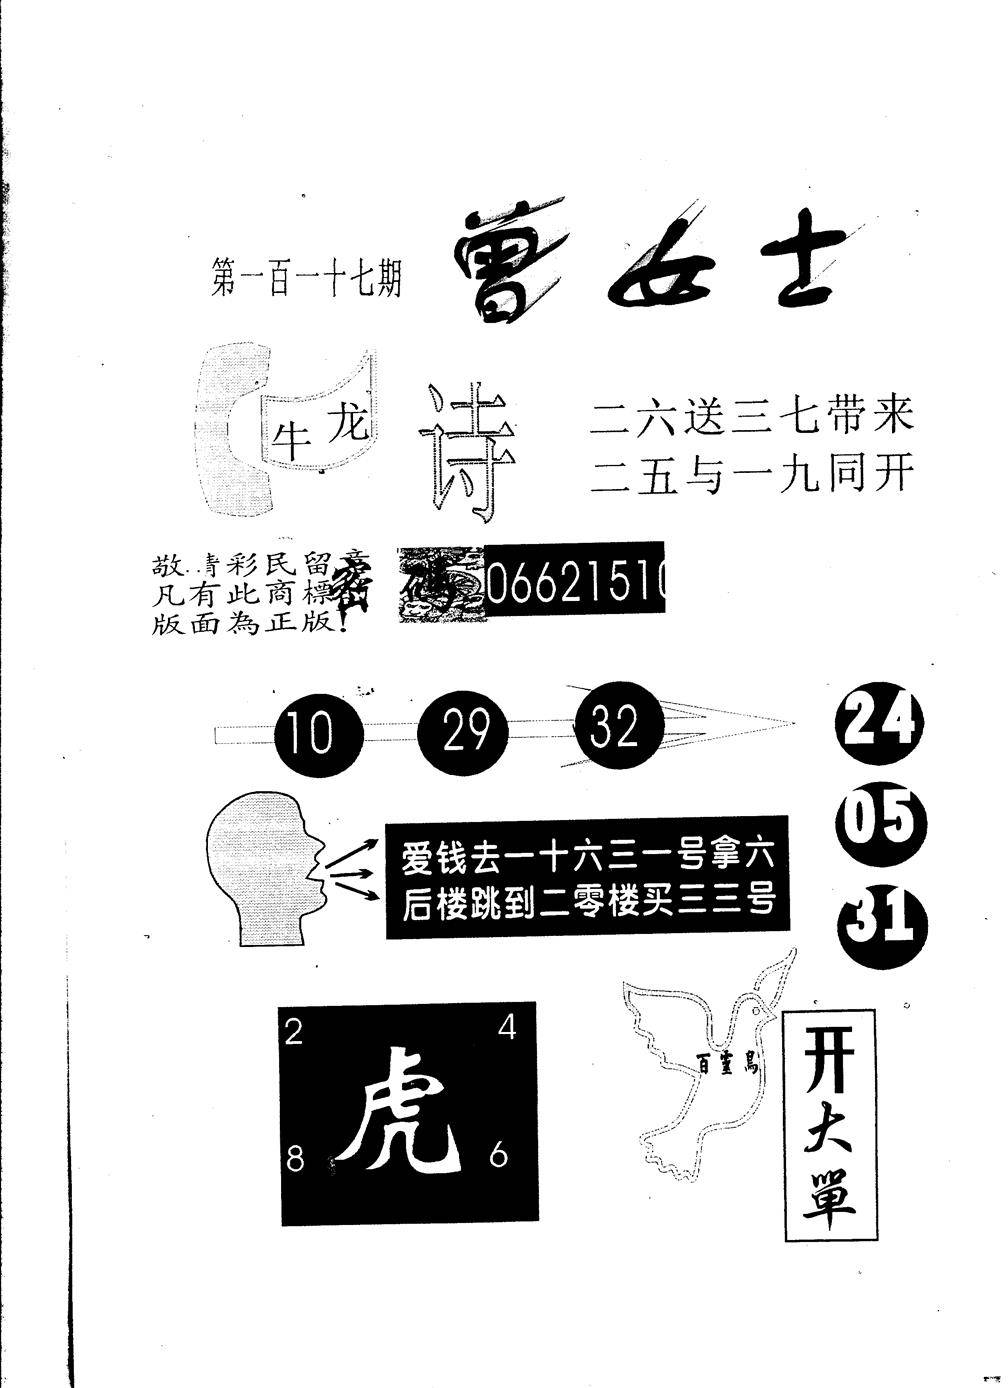 第一百一十七期
曾女士
牛
龙
诗
二六送三七带来
二五与一九同开
敬请彩民留意
凡有此商標
版面為正版!
密码
06621510
10
29
32
24
05
31
爱钱去一十六三一号拿六
后楼跳到二零楼买三三号
2
4
虎
8
6
百靈鳥
开大單